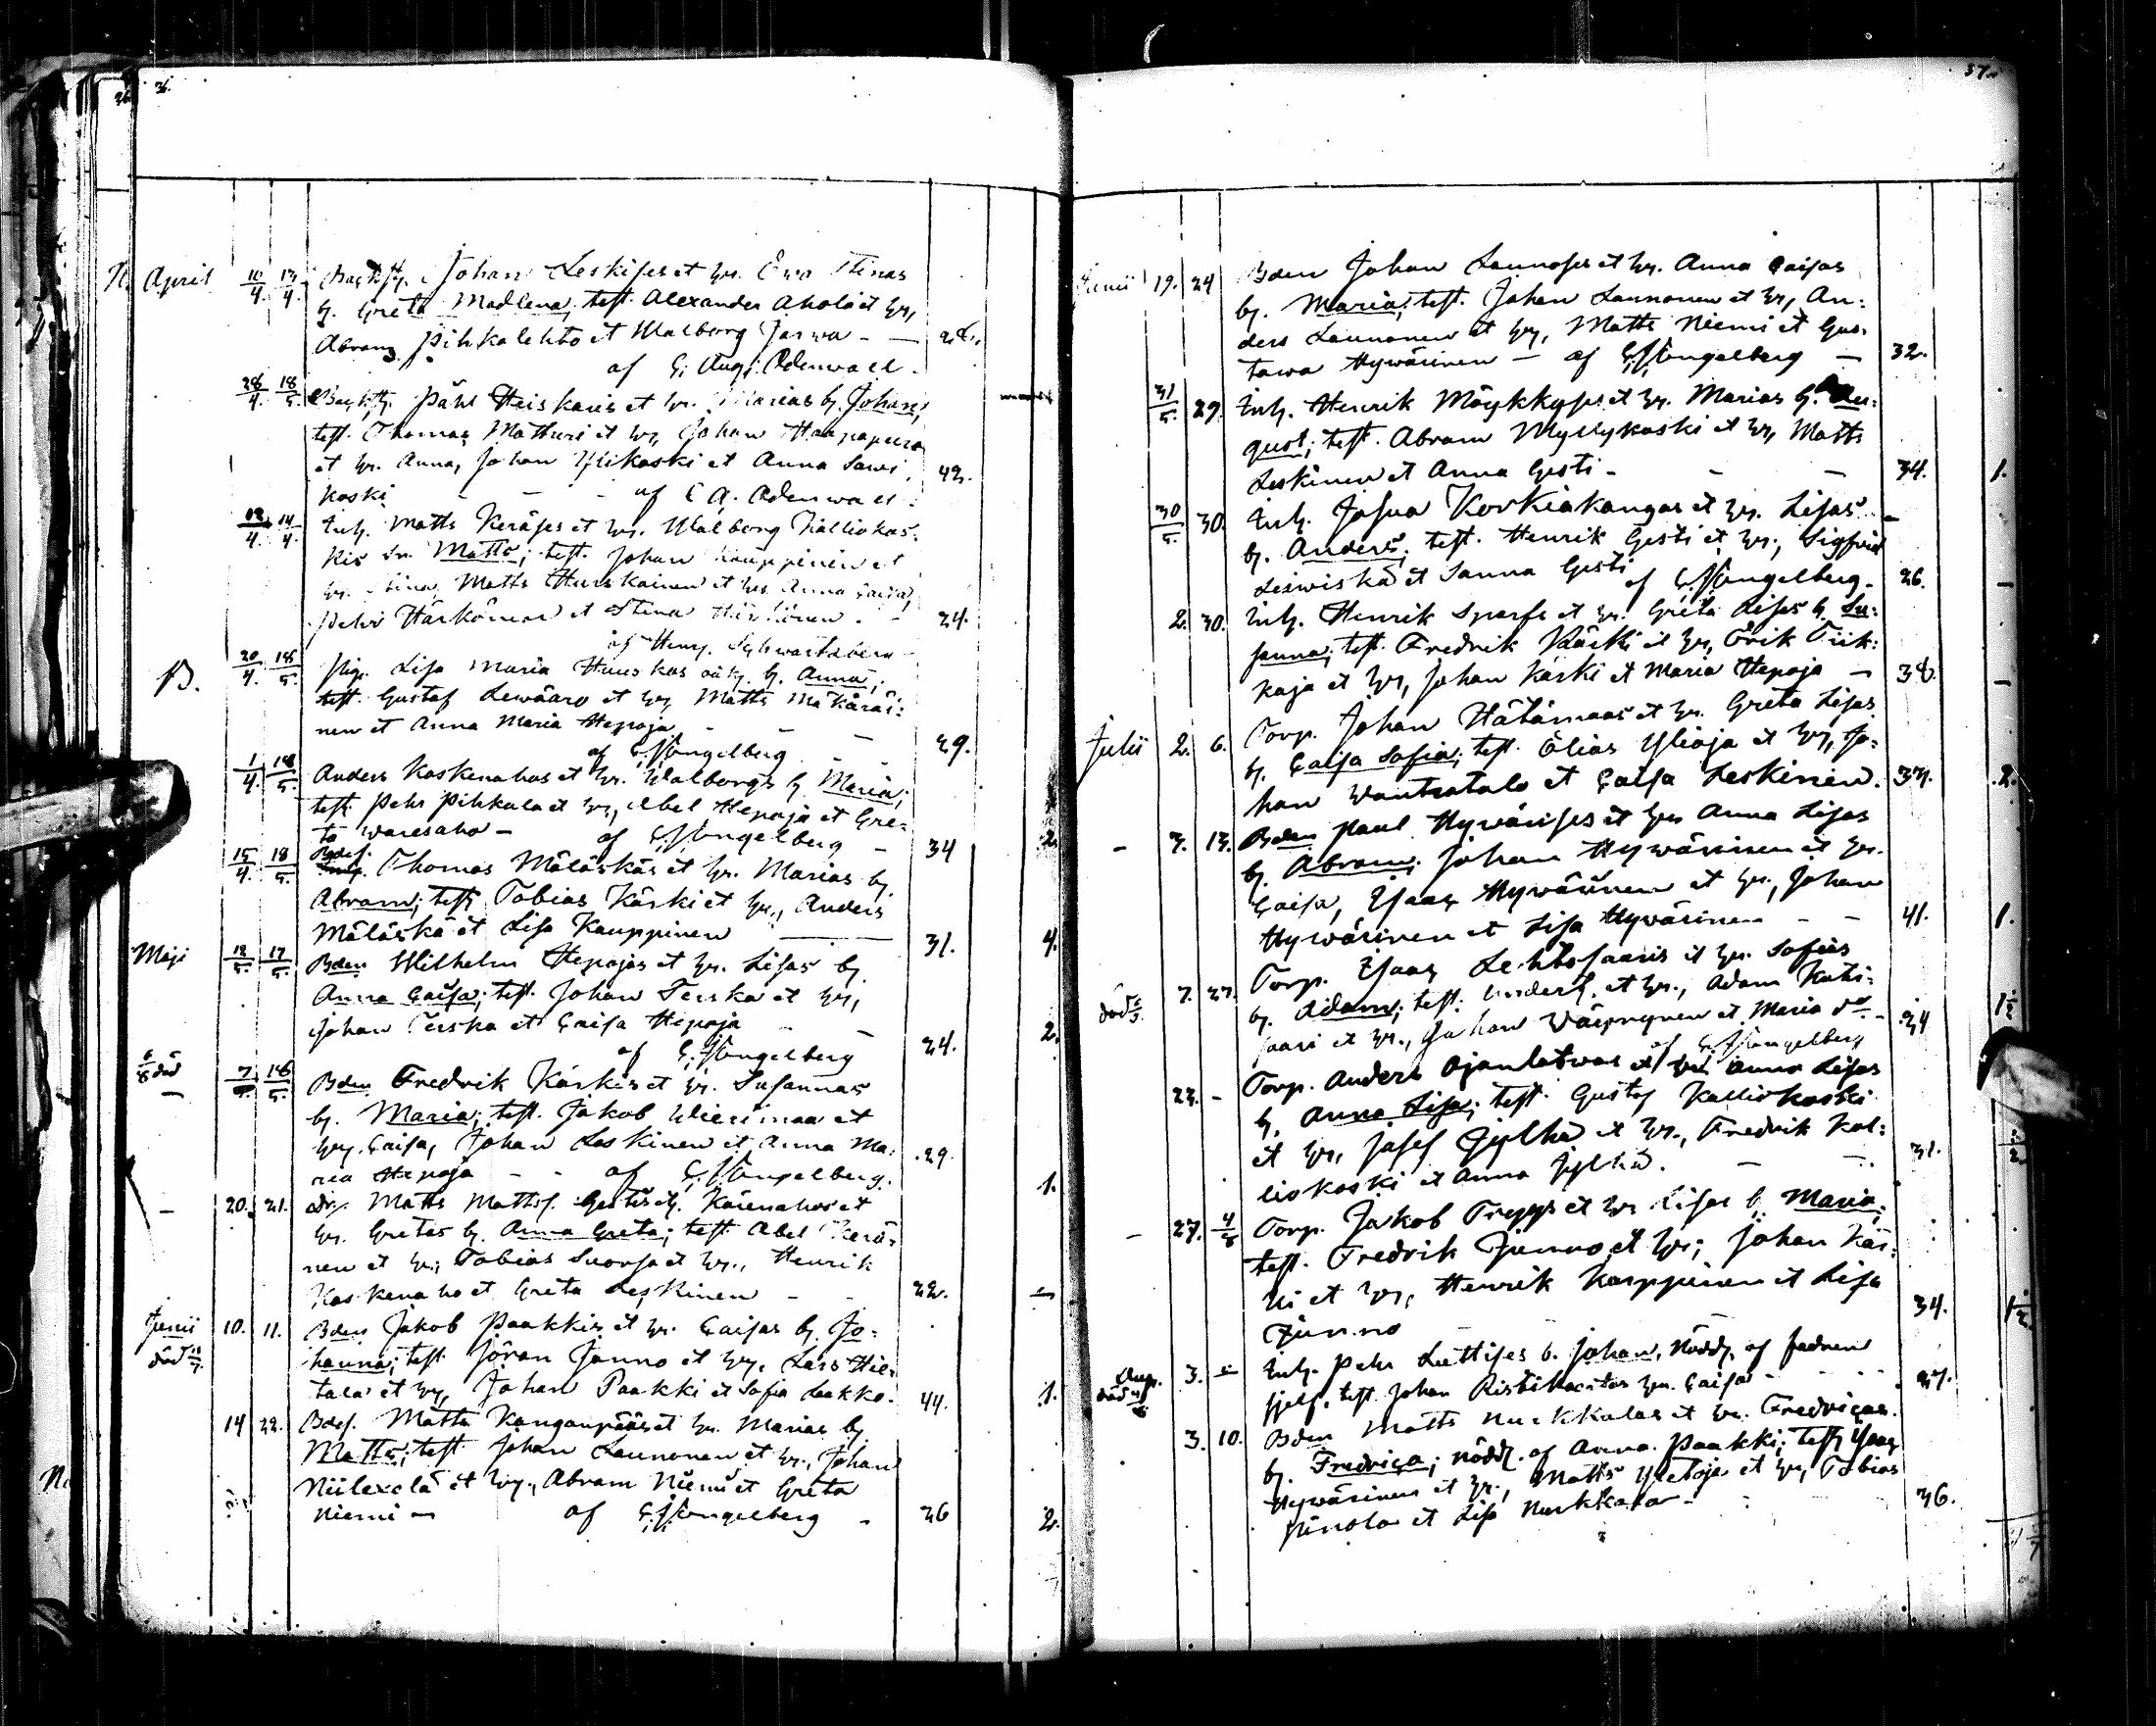 36.
April 10/4 13/4 Johan Leskises et hr. Ewa Stinas
b. Greta Madlena; test. Alexander Ahola et hr,
Abram Pihkalehto et Walborg Jarwa - — 28.
af C. Aug. Odenwall.
28/4 18/5 Påhl Heiskaris et hr. Marias b. Johan;
test. Thomas Matturi et hr, Johan Haapapuro
et hr. Anna, Johan Ylikoski et Anna Sawi, 42.
koski - - - af C A. Odenwall.
12/4 14/4 Inh. Matts Keräses et hr. Walborg Kalliokos-
kis sn. Matts; test. Johan Kauppinen et
hr. Stina, Matts Huuskainen et hr. Anna Caisa,
Pehr Härkönen et Stina Härkönen. - 24.
af Henr. Schwartzberg
B. 20/4 18/5 Pig. Lisa Maria Huuskas oäk. b. Anna;
test. Gustaf Lewäaro et hr, Matts Mäkäräi-
nen et Anna Maria Hepoja - - — 29.
af C. Engelberg
1/4 18/5 Anders Koskenahos et hr. Walborgs b. Maria;
test. Pehr Pihkala et hr, Abel Hepoja et Gre-
ta Waresaho - af C. Engelberg - 34 2.
15/4 18/5 Bdes. Thomas Mäläskäs et hr. Marias b.
Abram; test. Tobias Kärki et hr., Anders
Mäläskä et Lisa Kauppinen — 31. 4.
Maji 12/5 17/5 Bden Wilhelm Hepojas et hr. Lisas b.
Anna Caisa; test. Johan Terska et hr,
Johan Terska et Caisa Hepoja - - 2.
af C. Engelberg 24.
6/8 död 7/5 18/5 Bden Fredrik Kärkis et hr. Susannas
b. Maria; test. Jakob Wierimaa et
hr. Caisa, Johan Leskinen et Anna Ma- 29.
ria Hepoja - - af C. Engelberg. 1.
— 20. 21. Matts Mattss. Gestis Käienahos et
hr. Gretas b. Anna Greta; test. Abel Kerä-
nen et hr., Tobias Suorsa et hr., Henrik
Koskenaho et Greta Leskinen - - 22. —
Junii 10. 11. Bden Jakob Paakkis et hr. Caisas b. Jo-
död hanna; test. Jöran Junno et hr, Lars Hie-
tala et hr, Johan Paakki et Sofia Laakko. 44. 1.
14 22. Bdes. Matts Kanganpääs et hr. Marias b.
Matts; test. Johan Launonen et hr., Johan
Niilexelä et hr., Abram Niemi et Greta
Niemi — af C. Engelberg - 26 2.
37.
Junii 19. 24 Bden Johan Launoses et hr. Anna Caisas
b. Maria; test. Johan Launonen et hr, An-
ders Launonen et hr, Matts Niemi et Gus-
tawa Hywärinen — af C. Engelberg — 32.
31/5. 29. Inh. Henrik Möykkyses et hr. Marias b. Au-
gust; test. Abram Myllykoski et hr, Matts
Leskinen et Anna Gesti - - — 34. 1.
30/5. 30. Inh. Josua Korkiakangas et hr. Lisas
b. Anders; test. Henrik Gesti et hr., Sigfrid
Leiwiskä et Sanna Gesti af C. Engelberg. 26. —
2. 30. Inh. Henrik Sparfs et hr. Greta Lisas b. Su-
sanna; test. Fredrik Kärki et hr, Erik Tiik-
kaja et hr, Johan Kärki et Maria Hepoja — 38. —
Julii 2. 6. Torp. Johan Hätämaas et hr. Greta Lisas
b. Caisa Sofia; test. Elias Ylioja et hr, Jo-
han Wanhatalo et Caisa Leskinen. 37. 2.
- 7. 13. Bden Paul Hywärises et hr Anna Lisas
b. Abram; Johan Hywärinen et hr.
Caisa, Isaac Hywärinen et hr., Johan
Hywärinen et Lisa Hywärinen - - 41. 1.
död 7. 27. Torp. Isaac Lehtosaaris et hr. Sofias
b. Adam; test. et hr., Adam Kuhi-
saari et hr., Johan Wäyrynen et Maria do - 24 1½
af C. Engelberg
27. - Torp. Anders Ojanlatwas et hr Anna Lisas
b. Anna Lisa; test. Gustaf Kalliokoski
et hr, Josef Jylhä et hr., Fredrik Kal-
liokoski et Anna Jylhä. — 31.
- 27. 4/8 Torp. Jakob Trygs et hr Lisas b. Maria;
test. Fredrik Junno et hr; Johan Kär-
ki et hr, Henrik Karppinen et Lisa
Junno — 34.
Aug. 3. — Inh. Pehr Luttises b. Johan, nöddp. af fadren
död sjelf, test. Johan hr. Caisa - - 27.
3. 10. Bden Matts Nurkkalas et hr. Fredricas
b. Fredrica; nöddp. af Anna Paakki; test. Isaac
Hywärinen et hr., Matts Yletoja et hr, Tobias
Pinola et Lisa Nurkkala - 36.